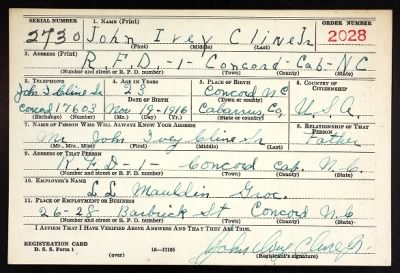 SERIAL NUMBER 1. NAME (Print) ORDER NUMBER
2730 John Ivey Cline Jr 2028
(First) (Middle) (Last)
2. ADDRESS (Print)
R.F.D. -1- Concord - Cab - N.C
(Number and street or R. F. D. number) (Town) (County) (State)
3. TELEPHONE 4. AGE IN YEARS 5. PLACE OF BIRTH 6. COUNTRY OF CITIZENSHIP
John I. Cline Sr 23 Concord N.C
DATE OF BIRTH (Town or county)
Concord 17603 Nov. 19-1916 Cabarrus Co, U.S.A.
(Exchange) (Number) (Mo.) (Day) (Yr.) (State or country)
7. NAME OF PERSON WHO WILL ALWAYS KNOW YOUR ADDRESS 8. RELATIONSHIP OF THAT PERSON
Mr. John Ivey Cline Sr Father
(Mr., Mrs., Miss) (First) (Middle) (Last)
9. ADDRESS OF THAT PERSON
R.F.D -1- Concord Cab. N.C.
(Number and street or R. F. D. number) (Town) (County) (State)
10. EMPLOYER'S NAME
L.L. Mauldin Groc.
11. PLACE OF EMPLOYMENT OR BUSINESS
26-28 Barbrick St Concord N.C
(Number and street or R. F. D. number) (Town) (County) (State)
I AFFIRM THAT I HAVE VERIFIED ABOVE ANSWERS AND THAT THEY ARE TRUE.
REGISTRATION CARD
D. S. S. Form 1 16—17105 John Ivey Cline Jr.
(Registrant's signature)